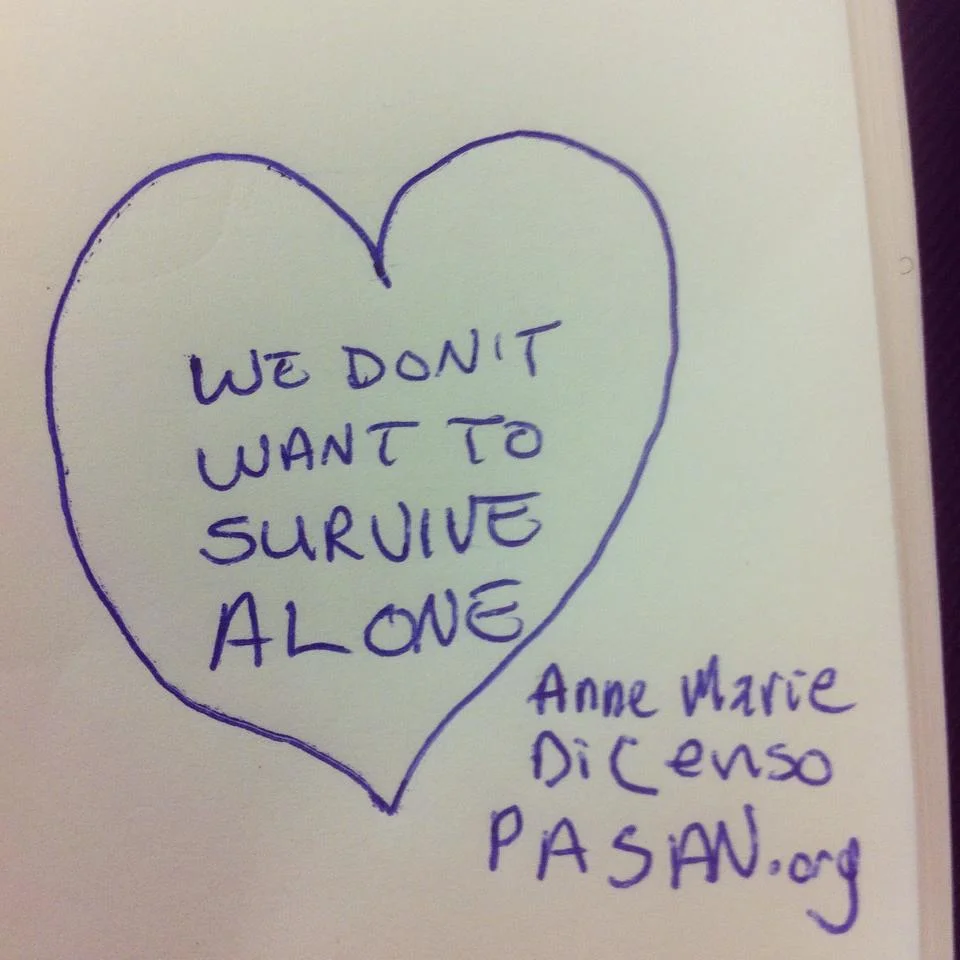 WE DON'T
WANT TO
SURVIVE
ALONE
Anne Marie
DiCenso
PASAN.org